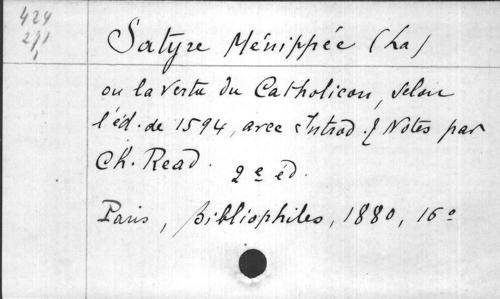 424
271
Satyre Ménippée (La)
ou la Vertu du Catholicon, selon
l'éd. de 1594, avec Introd. & Notes par
Ch. Read. 2e éd.
Paris, Bibliophiles, 1880, 16º